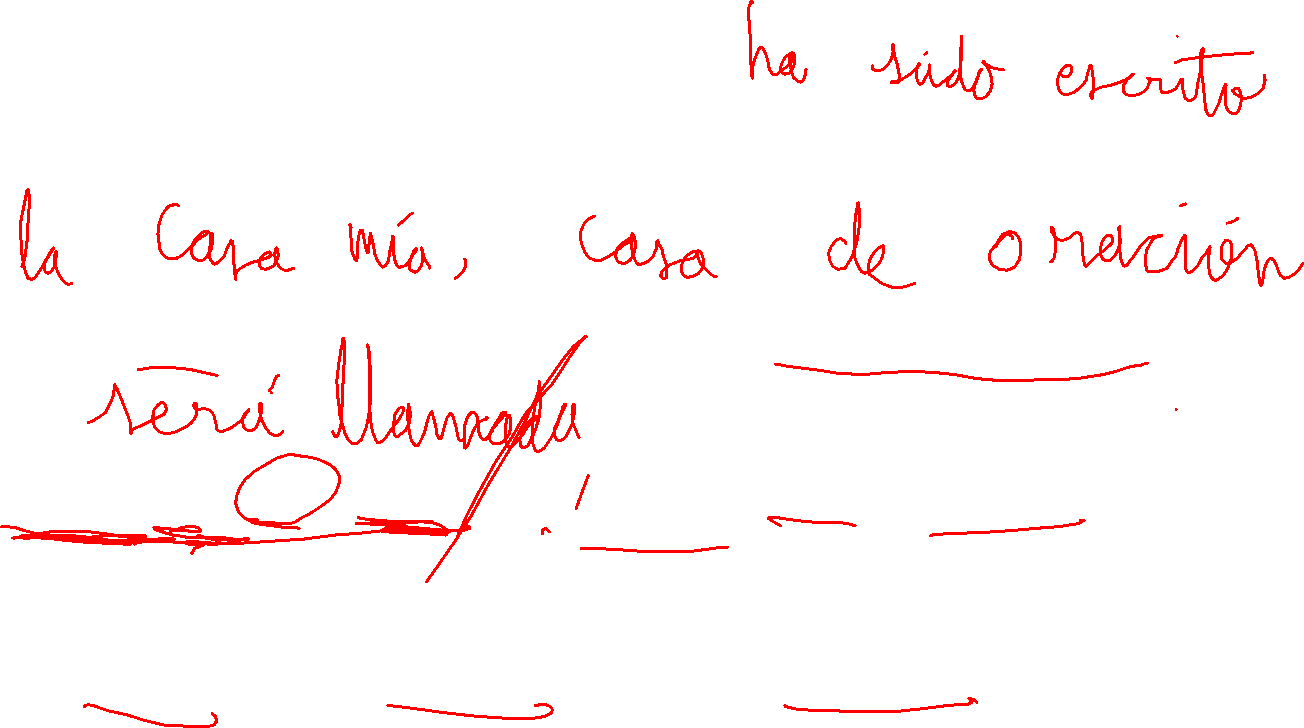 ha sido escrito
la Casa mía, casa de oración
será llamada